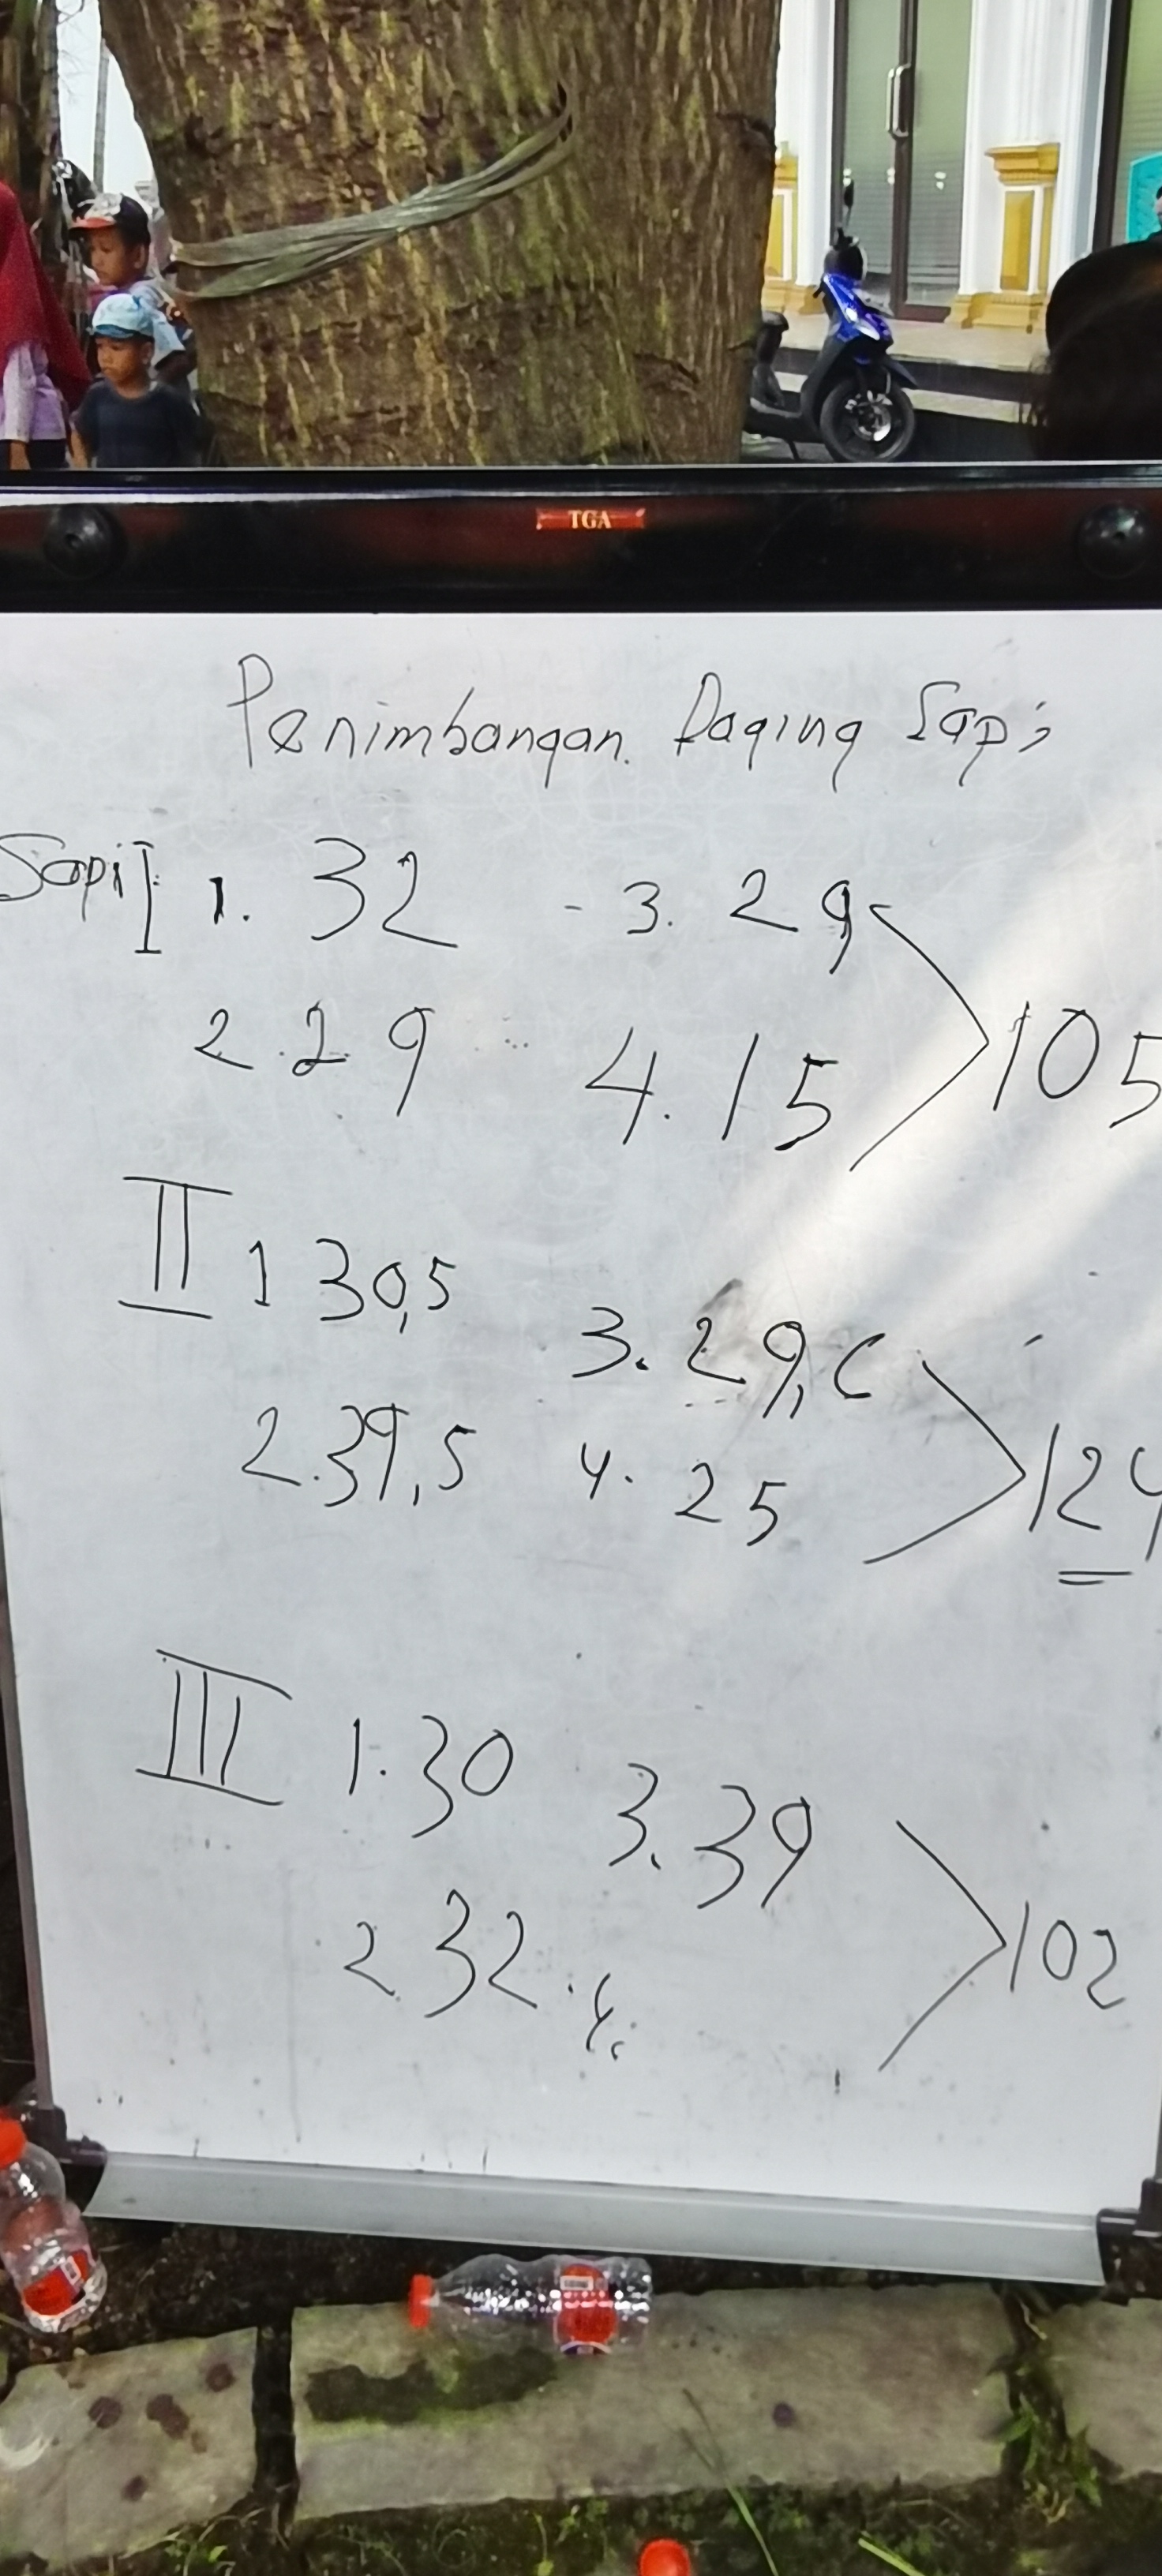 TGA
Penimbangan Daging Sapi
Sapi I 1. 32 - 3. 29 105
2. 29 4. 15
II 1 30,5 3. 29,6 124
2. 39,5 4. 25
III 1. 30 3. 39 102
2. 32 4.